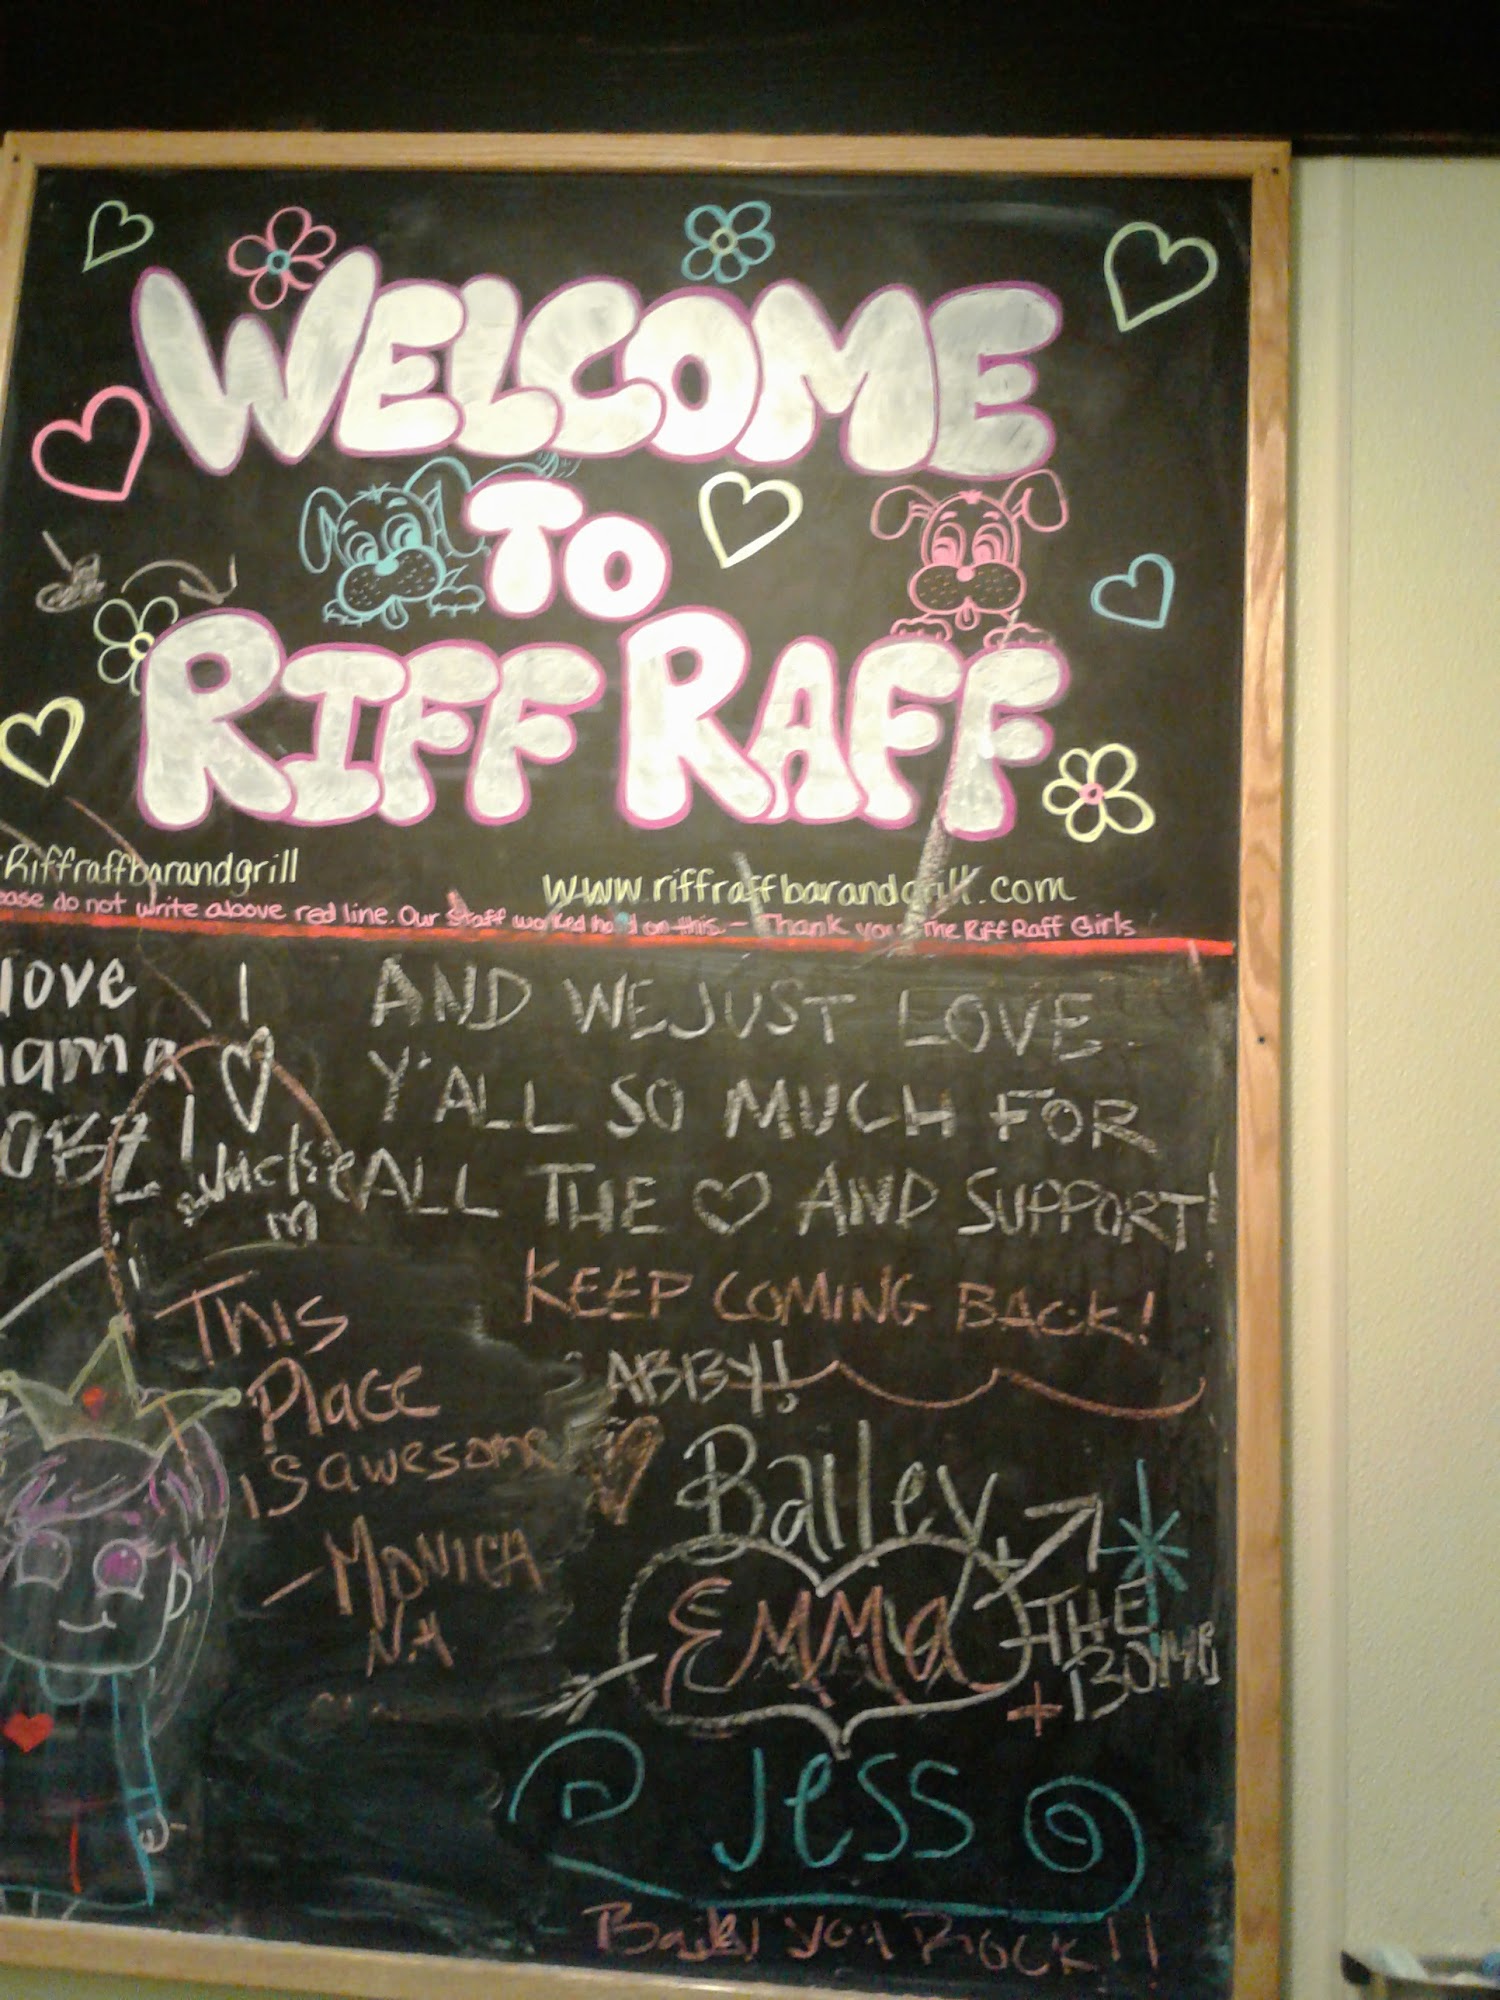 WELCOME
TO
RIFF RAFF
Riffraffbarandgrill
www.riffraffbarandgrill.com
ease do not write above red line. Our staff worked hard on this. - Thank you The Riff Raff Girls
love
I
AND WE JUST LOVE
Y'ALL SO MUCH FOR
Jackie
ALL THE ♡ AND SUPPORT!
KEEP COMING BACK!
ABBY!
This
Place
is awesome
- MONICA
Bailey
EMMA
THE
BOMB
+
Jess
you Rock!!